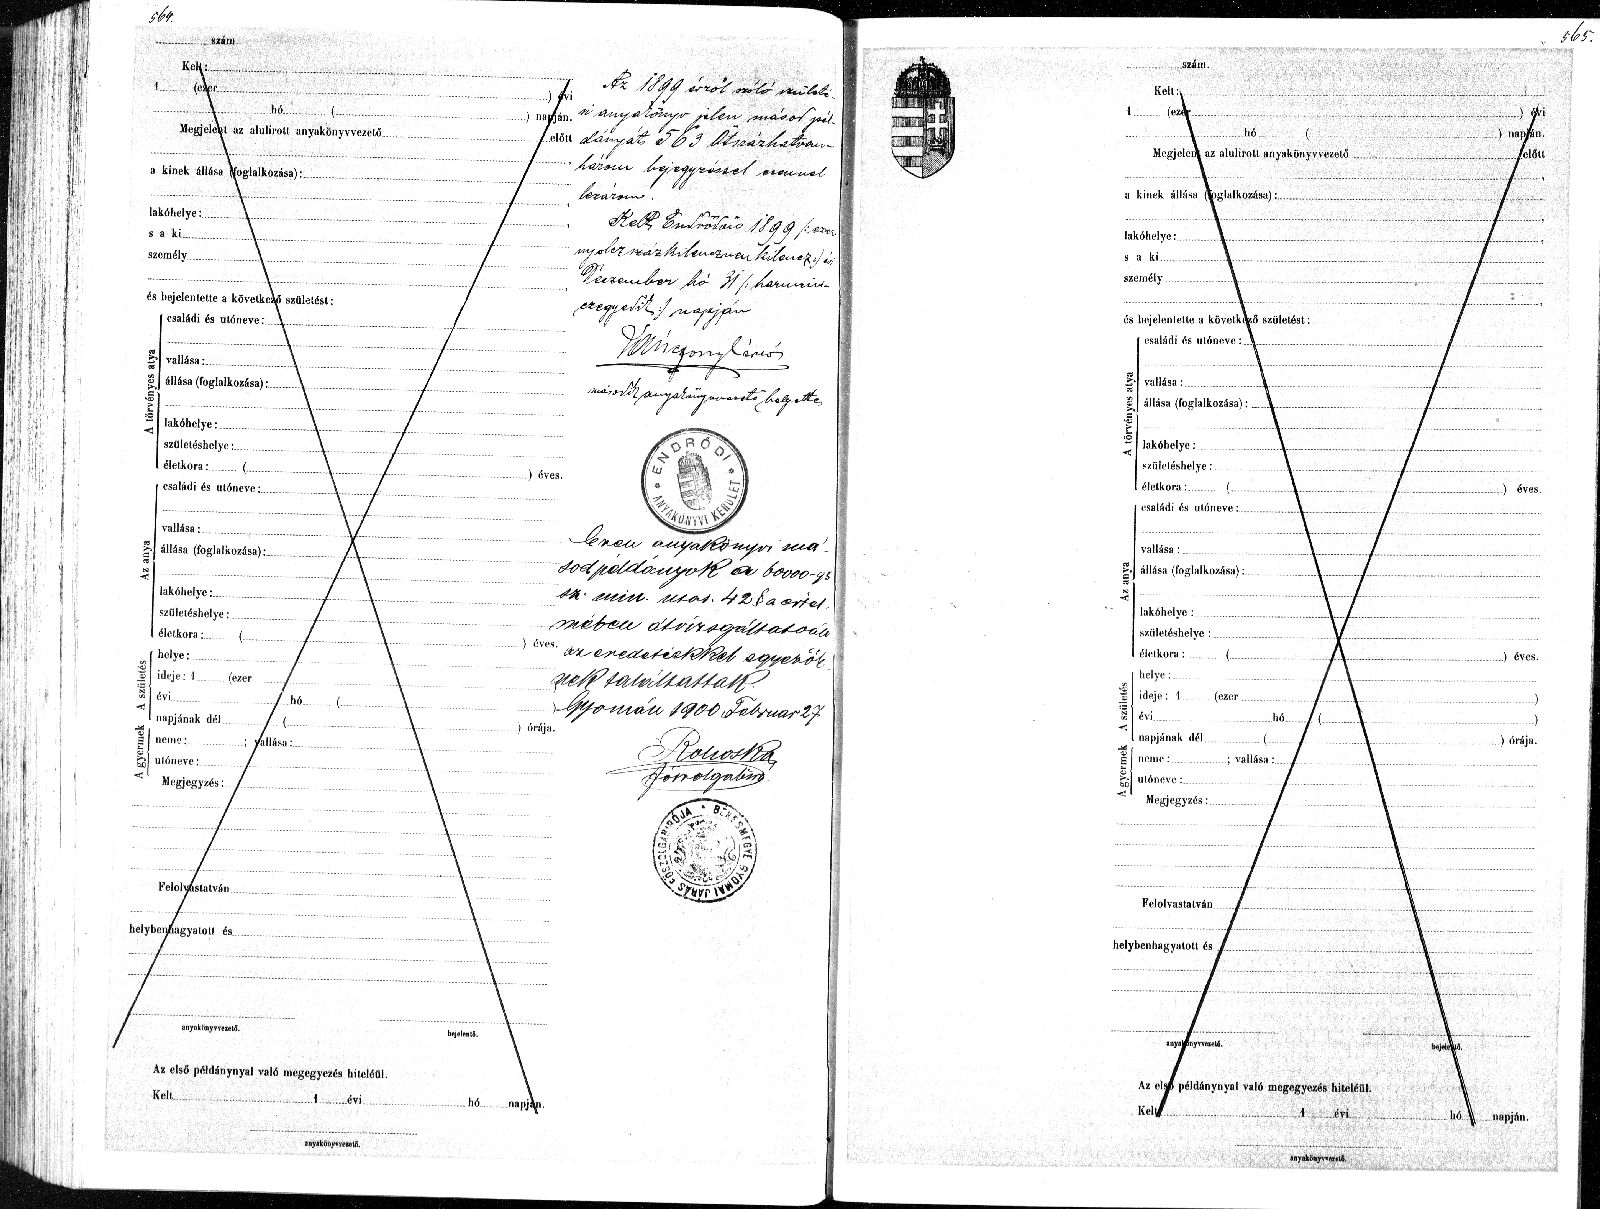 564.
szám
Kelt:
1 (ezer ) évi
hó ( ) napján.
Megjelent az alulirott anyakönyvvezető előtt
a kinek állása (foglalkozása):
lakóhelye:
s a ki
személy
és bejelentette a következő születést:
A törvényes atya
családi és utóneve:
vallása:
állása (foglalkozása):
lakóhelye:
születéshelye:
életkora: ( ) éves.
Az anya
családi és utóneve:
vallása:
állása (foglalkozása):
lakóhelye:
születéshelye:
életkora: ( ) éves.
A születés
helye:
ideje: 1 (ezer
évi hó (
napjának dél ( ) órája.
A gyermek
neme: ; vallása:
utóneve:
Megjegyzés:
Felolvastatván
helybenhagyatott és
anyakönyvvezető. bejelentő.
Az első példánynyal való megegyezés hiteléül.
Kelt 1 évi hó napján.
anyakönyvvezető.
Az 1899 évről szóló születé-
si anyakönyv jelen másod pél-
dányát 563 Ötszázhatvan-
három bejegyzéssel ezennel
lezárom.
Kelt, Endrődön 1899 /: ezer
nyolczszázkilenczvenkilencz :/ év
Deczember hó 31 /: harmin-
czegyedik :/ napján
második anyakönyvvezető helyettes
* ENDRŐDI *
ANYAKÖNYVI KERÜLET
Ezen anyakönyvi má-
sodpéldányok a 60000-gs
sz. min. utas. 42 § a értel-
mében átvizsgáltatván
az eredetiekkel egyezők-
nek találtattak.
Gyomán 1900 Február 27
főszolgabíró
BÉKÉSMEGYE GYOMAI JÁRÁS FŐSZOLGABIRÓJA *
565.
szám.
Kelt:
1 (ezer ) évi
hó ( ) napján.
Megjelent az alulirott anyakönyvvezető előtt
a kinek állása (foglalkozása):
lakóhelye:
s a ki
személy
és bejelentette a következő születést:
A törvényes atya
családi és utóneve:
vallása:
állása (foglalkozása):
lakóhelye:
születéshelye:
életkora: ( ) éves.
Az anya
családi és utóneve:
vallása:
állása (foglalkozása):
lakóhelye:
születéshelye:
életkora: ( ) éves.
A születés
helye:
ideje: 1 (ezer )
évi hó ( )
napjának dél ( ) órája.
A gyermek
neme: ; vallása:
utóneve:
Megjegyzés:
Felolvastatván
helybenhagyatott és
anyakönyvvezető. bejelentő.
Az első példánynyal való megegyezés hiteléül.
Kelt 1 évi hó napján.
anyakönyvvezető.